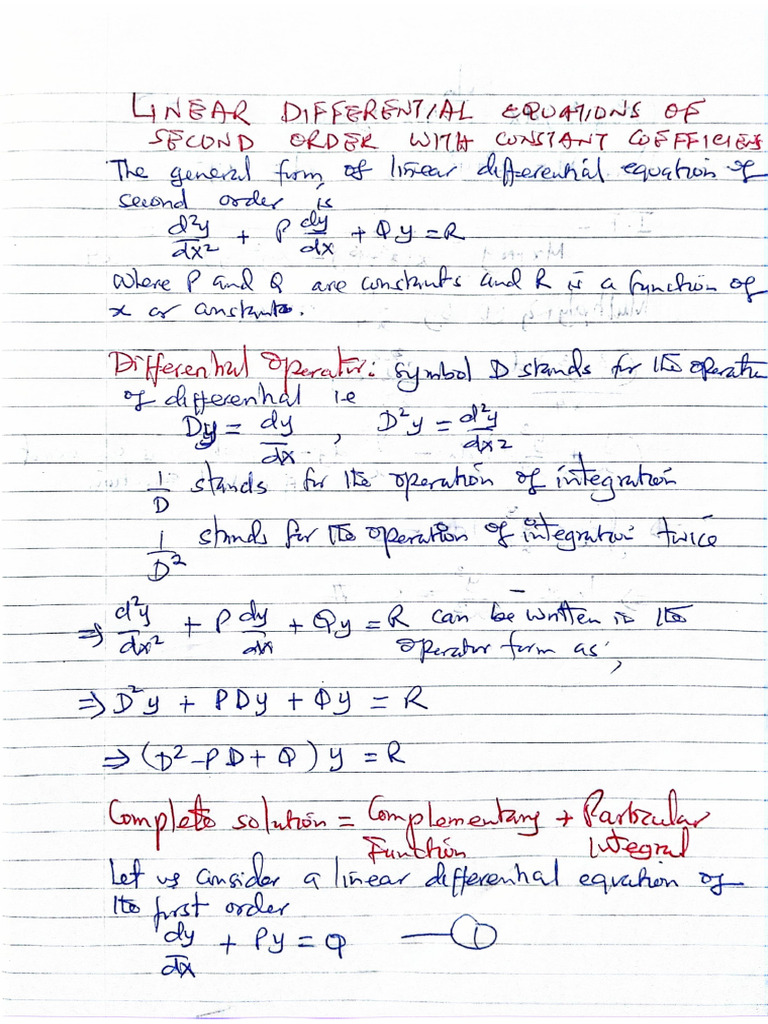 LINEAR DIFFERENTIAL EQUATIONS OF
SECOND ORDER WITH CONSTANT COEFFICIENTS
The general form of linear differential equation of
second order is
d²y/dx² + P dy/dx + Qy = R
where P and Q are constants and R is a function of
x or constants.
Differential Operator: Symbol D stands for the operation
of differential i.e
Dy = dy/dx , D²y = d²y/dx²
1/D stands for the operation of integration
1/D² stands for the operation of integration twice
⇒ d²y/dx² + P dy/dx + Qy = R can be written in the
operator form as,
⇒ D²y + PDy + Qy = R
⇒ (D² - PD + Q) y = R
Complete solution = Complementary + Particular
Function Integral
Let us consider a linear differential equation of
the first order
dy/dx + Py = Q — 1